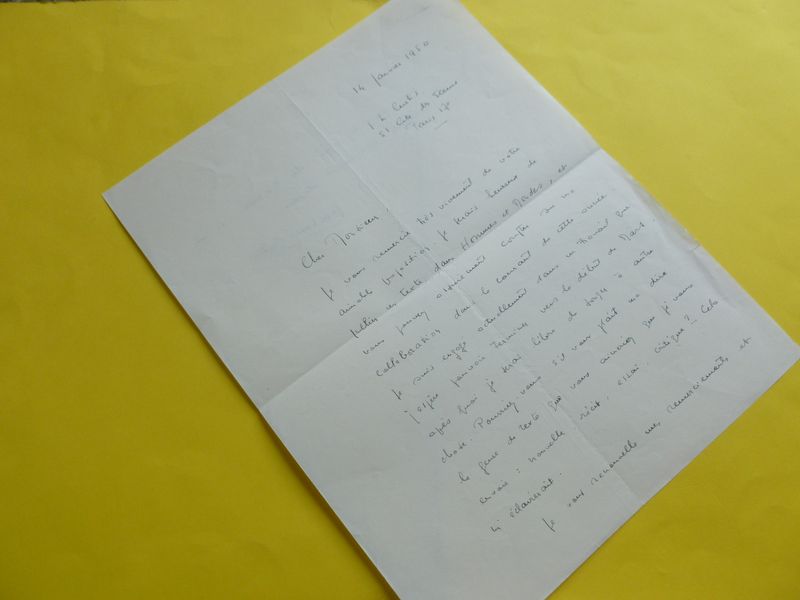 14 janvier 1950
51 rue des
Paris 17e
Cher Monsieur,
Je vous remercie très vivement de votre
aimable proposition. Je serais heureux de
publier un texte dans Hommes et Mondes, et
vous pouvez certainement compter sur ma
collaboration dans le courant de cette année.
Je suis engagé actuellement dans un travail que
j'espère pouvoir terminer vers le début de Mars.
après quoi je serai libre de songer à autre
chose. Pourriez-vous s'il vous plaît me dire
le genre de texte que vous aimeriez que je vous
envoie : nouvelle, récit, essai, critique ? Cela
m'éclairerait.
Je vous renouvelle mes remerciements et